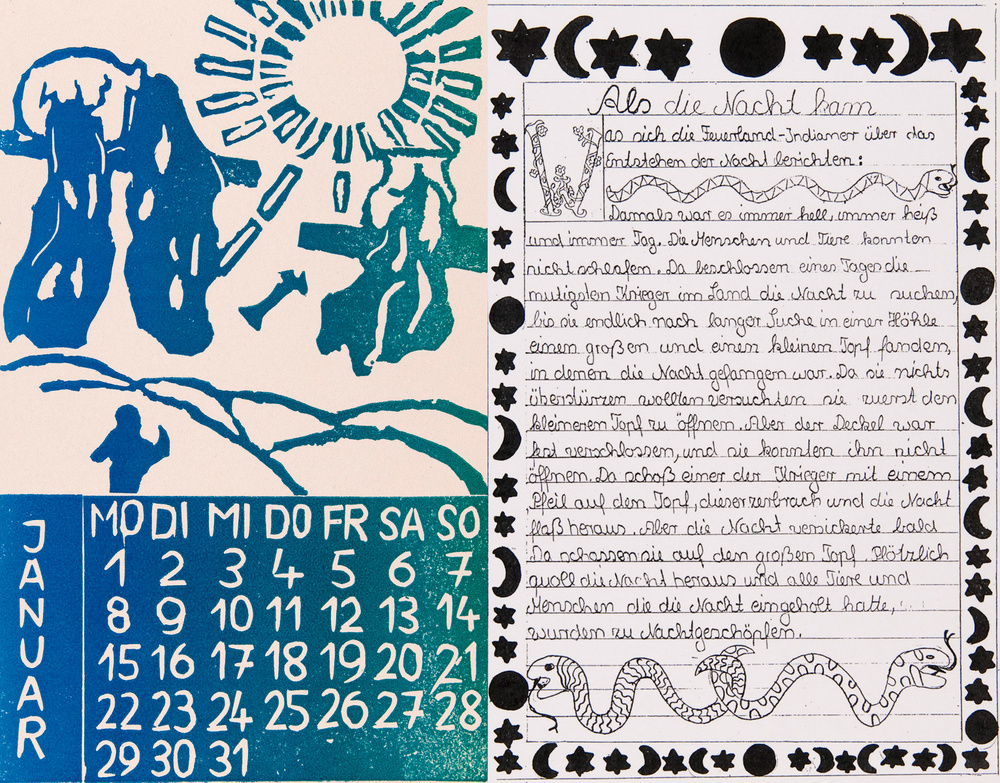 JANUAR
MO DI MI DO FR SA SO
1 2 3 4 5 6 7
8 9 10 11 12 13 14
15 16 17 18 19 20 21
22 23 24 25 26 27 28
29 30 31
Als die Nacht kam
Was sich die Feuerland-Indianer über das
Entstehen der Nacht berichten:
Damals war es immer hell, immer heiß
und immer Tag. Die Menschen und Tiere konnten
nicht schlafen. Da beschlossen eines Tages die
mutigsten Krieger im Land die Nacht zu suchen,
bis sie endlich nach langer Suche in einer Höhle
einen großen und einen kleinen Topf fanden,
in denen die Nacht gefangen war. Da sie nichts
überstürzen wollten versuchten sie zuerst den
kleineren Topf zu öffnen. Aber der Deckel war
fest verschlossen, und sie konnten ihn nicht
öffnen. Da schoß einer der Krieger mit einem
Pfeil auf den Topf, dieser zerbrach und die Nacht
floß heraus. Aber die Nacht versickerte bald
Da schossen sie auf den großen Topf. Plötzlich
quoll die Nacht heraus und alle Tiere und
Menschen die die Nacht eingeholt hatte,
wurden zu Nachtgeschöpfen.